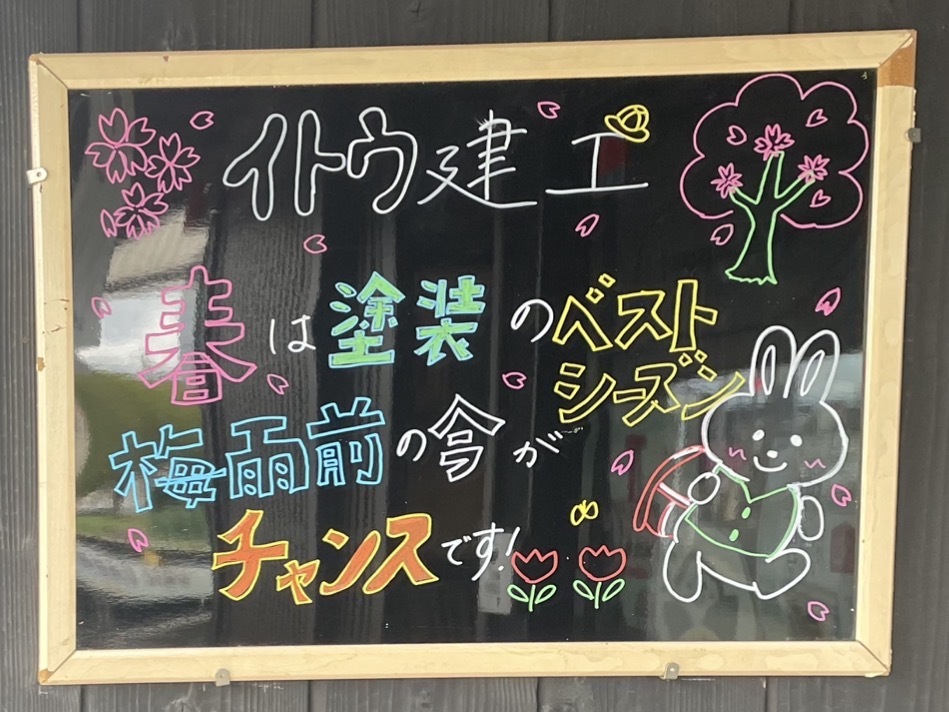 イトウ建工
春は塗装のベスト
シーズン
梅雨前の今が
チャンスです!